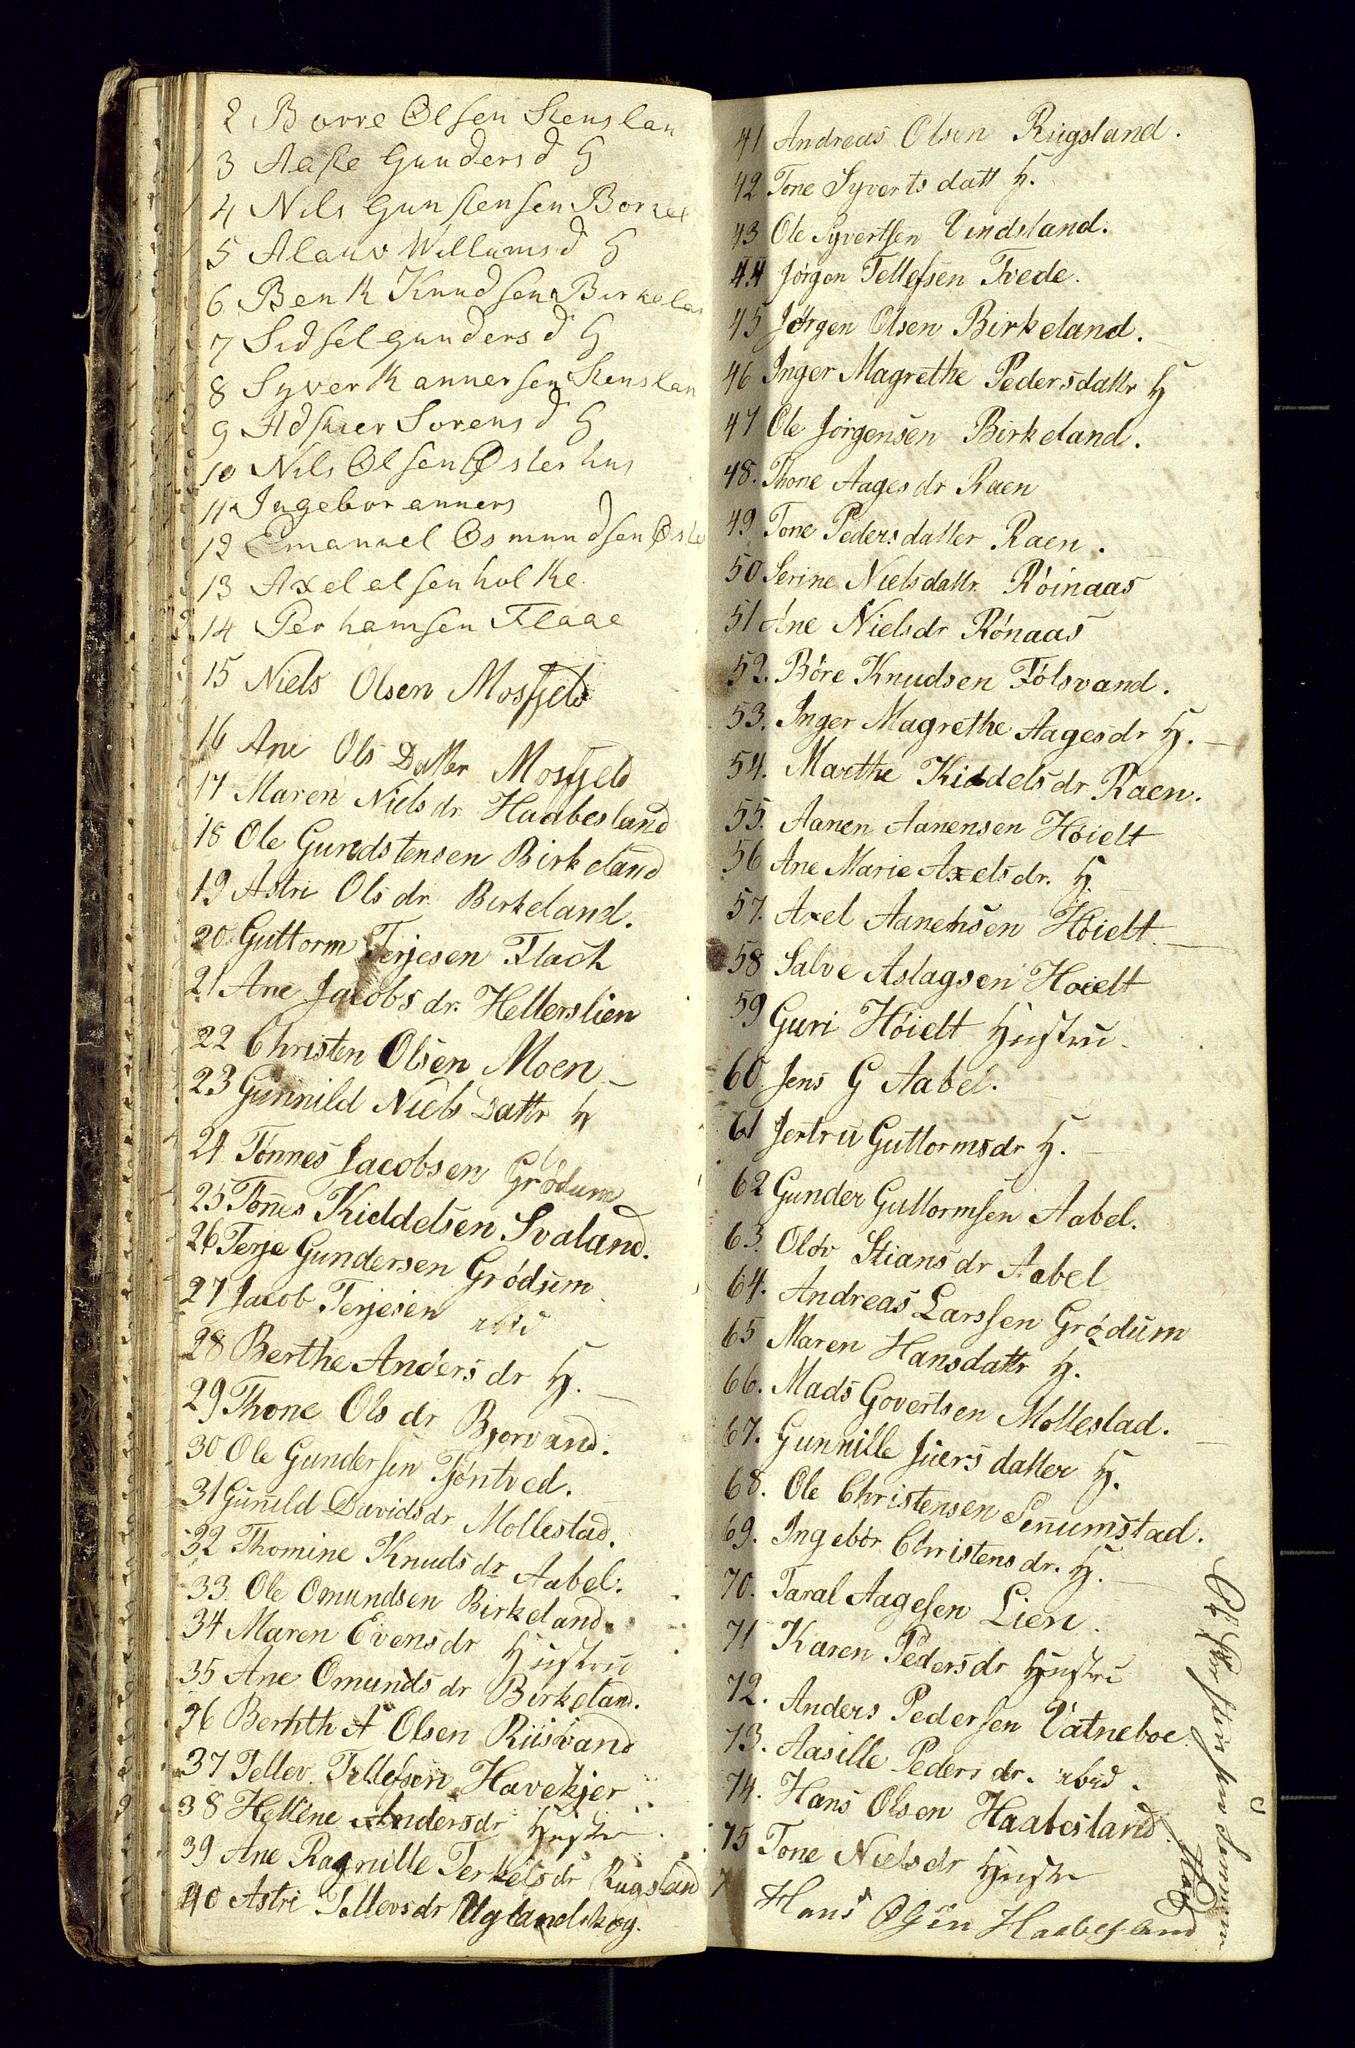 2 Borre Olsen Stenslan
3 Aase Gunders d H
4 Nils Gunstensen Borkel
5 Alauv Willums d H
6 Benk Knudsen Birkelan
7 Sidsel gunders d H
8 Syver Kannersen Stenslan
9 Adskier Sorens d H
10 Nils Olsen Østerhus
11 Ingebor anners
12 Emanuel Osmundsen Øste
13 Axel olsen holke
14 Per hansen Flaae
15 Niels Olsen Mosfjeld
16 Ane Ols Datter Mosfjeld
17 Maren Niels dr. Haabesland
18 Ole Gundstensen Birkeland
19 Astri Ols dr. Birkeland.
20 Guttorm Terjesen Flach
21 Ane Jacobs dr. Hellerslien
22 Christen Olsen Moen
23 Gunnild Niels Dattr H
24 Tønnes Jacobsen Grødum
25 Tønes Kiddelsen Svaland.
26 Terje Gundersen Grødum
27 Jacob Terjesen ibid
28 Berthe Anders dr H.
29 Thone Ols dr Bjorvand.
30 Ole Gundersen Tjøntved.
31 Guneld Davidsdr Mollestad.
32 Thomine Knuds dr Aabel.
33. Ole Omundsen Birkeland.
34 Maren Evensdr Hustru
35 Ane Omunds dr Birkeland.
36 Berhth A Olsen Riisvand
37 Tellev Tellefsen Havekjer
38 Hellene Andersdr Hustr
39 Ane Ragnille Terkelsdr Rugsland
40 Astri Tellevsdr Uglandskog.
41 Andreas Olsen Rugsland.
42 Tone Syvertsdatt H.
43 Ole Syvertsen Vindsland.
44 Jørgen Tellefsen Tvede.
45 Jørgen Olsen Birkeland.
46 Inger Magrethe Pedersdattr H
47 Ole Jørgensen Birkeland.
48. Thone Aages dr Raen
49 Tone Pedersdatter Raen.
50 Serine Nielsdattr. Røinaas
51 Ane Nielsdr Rønaas
52. Børe Knudsen Følsvand.
53. Inger Magrethe Aagesdr H.
54. Marthe Kiddelsdr Raen.
55. Aanen Aanensen Høielt
56 Ane Marie Axelsdr. H.
57. Axel Aanensen Høielt
58 Salve Aslagsen Hoielt
59 Guri Høielt Hustru.
60. Jens G Aabel.
61 Jertru Guttormsdr H.
62 Gunder Guttormsen Aabel.
63. Oløv Stians dr Aabel
64. Andreas Larssen Grødum
65 Maren Hansdattr H.
66. Mads Govertsen Møllestad.
67. Gunnille Juers datter H.
68. Ole Christensen Senumstad.
69. Ingebør Christensdr. H.
70. Taral Aagesen Lien.
71 Karen Pedersdr Hustru
72. Anders Pedersen Vatneboe
73. Aasille Peders dr. ibid.
74. Hans Olsen Haabesland.
75 Tone Nielsdr Hustr
7 Hans Olsen Haabesland